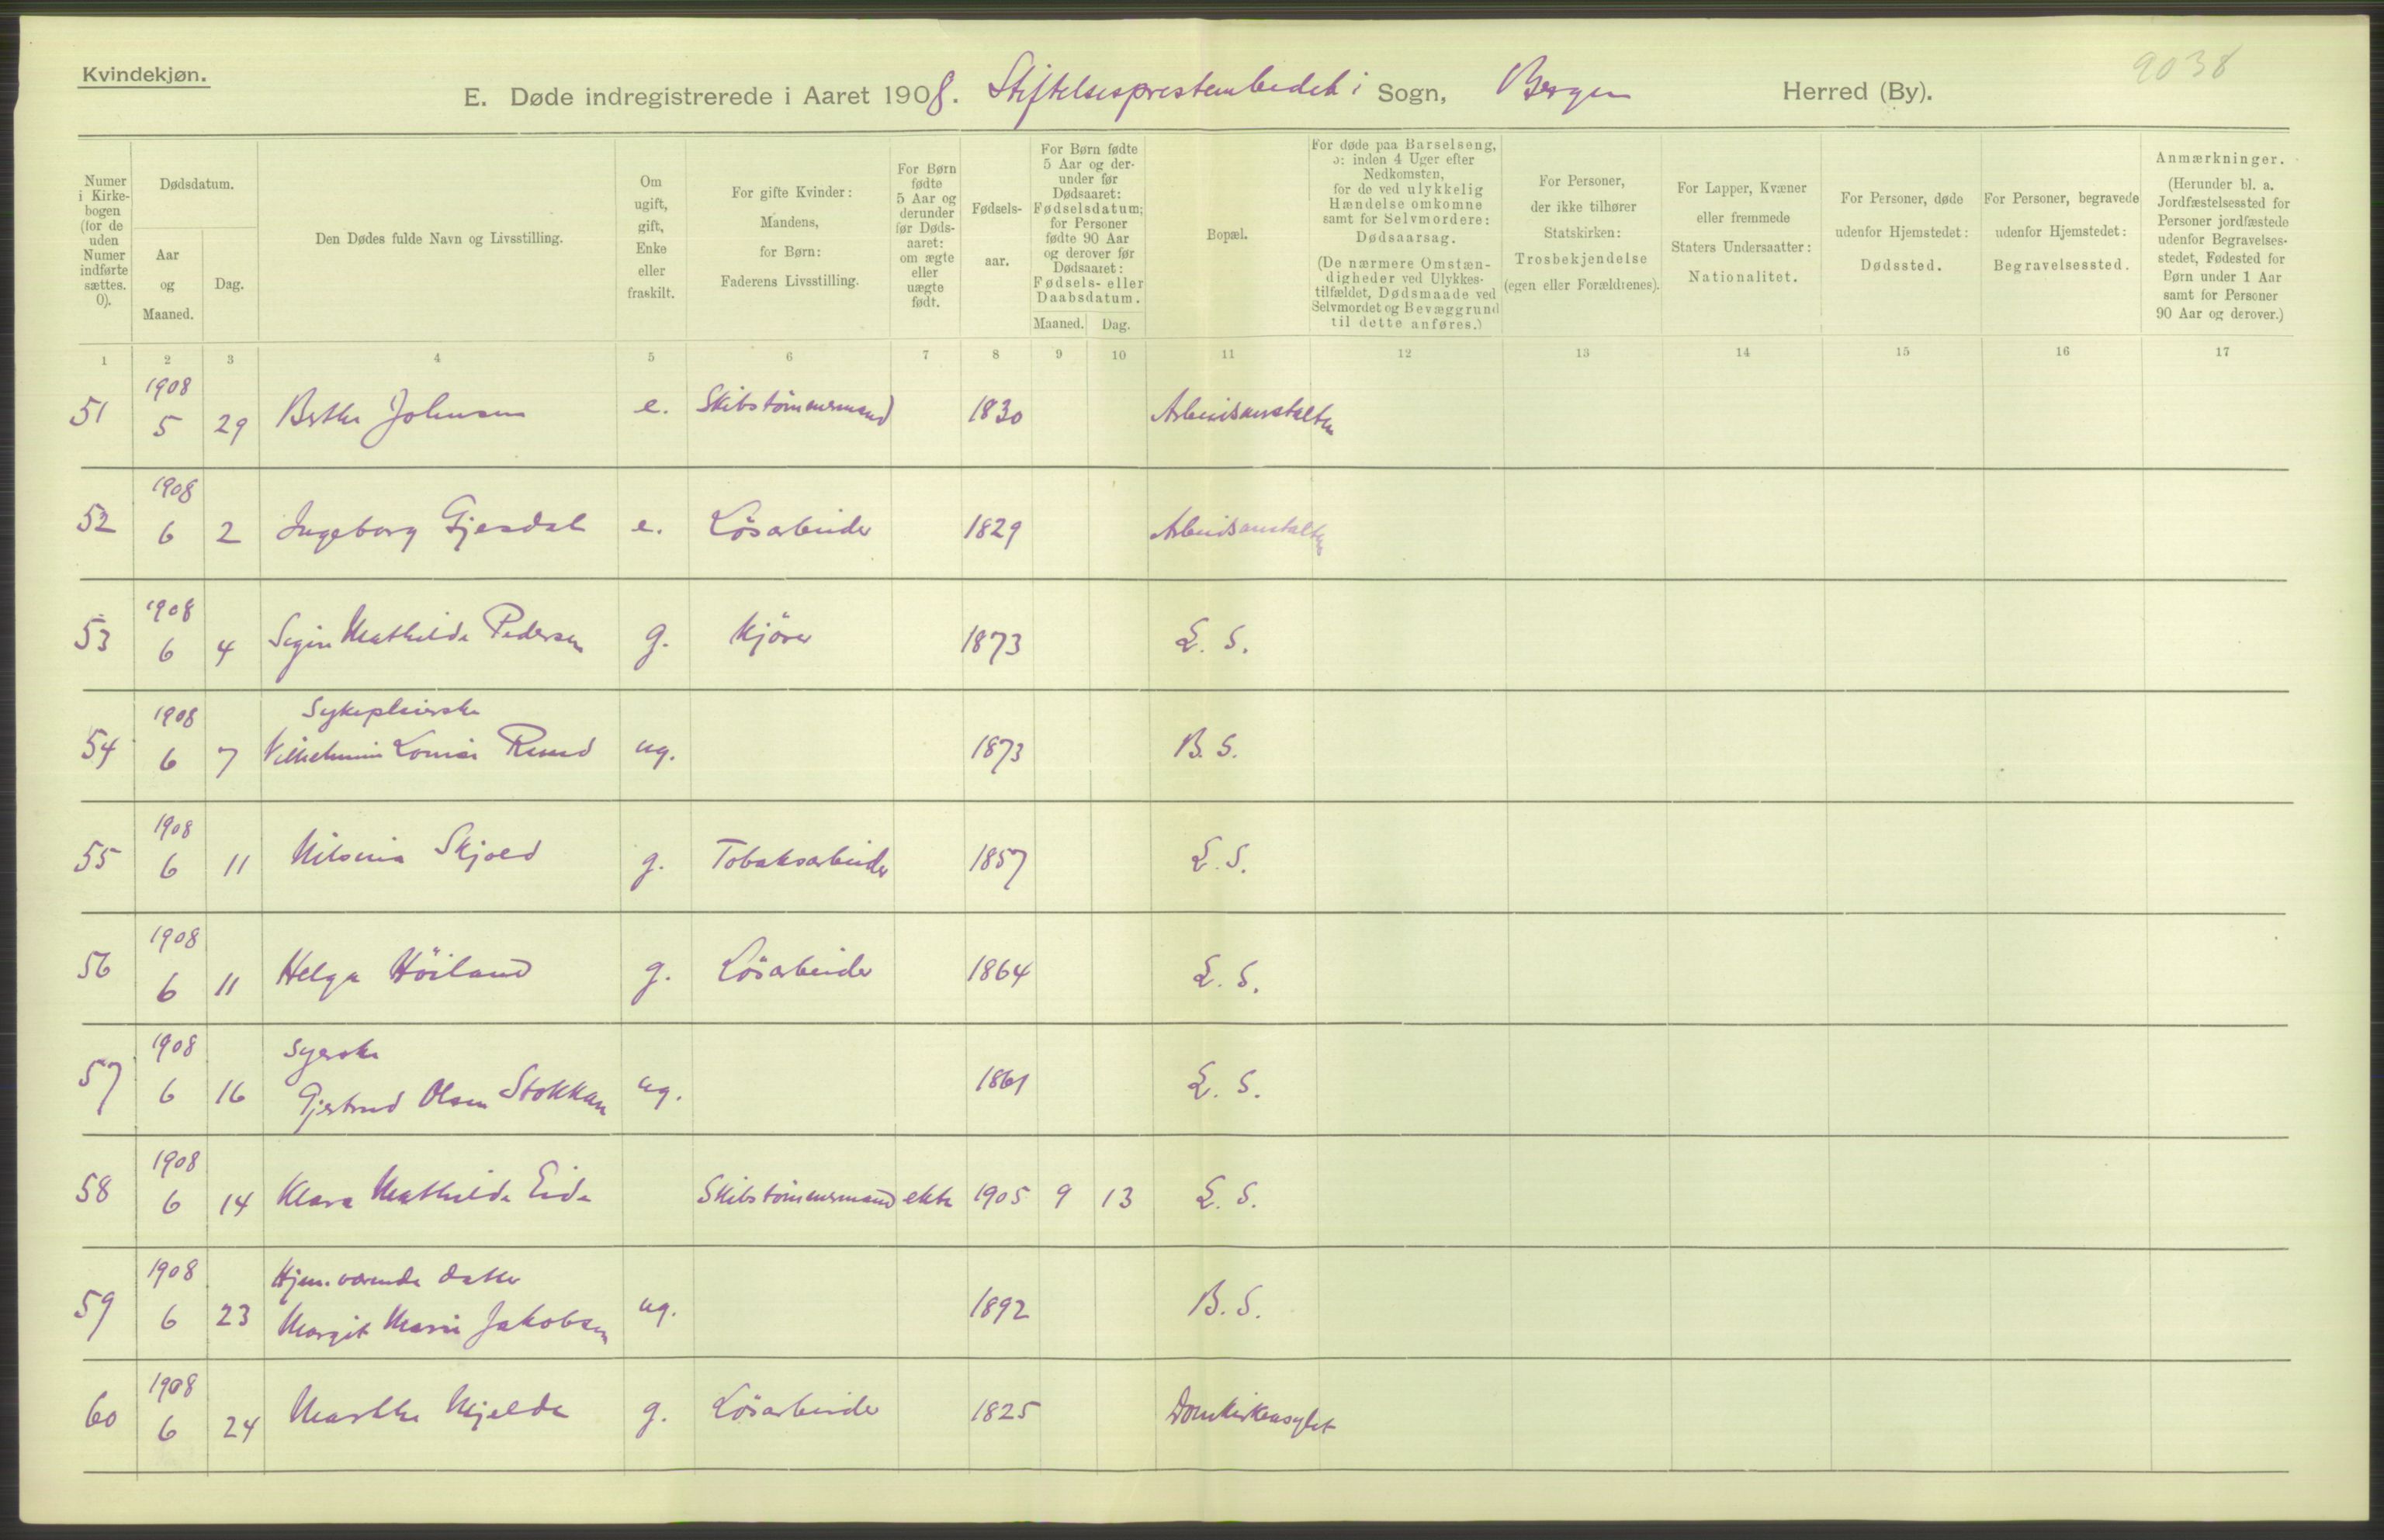 Kvindekjøn.
9038
E. Døde indregistrerede i Aaret 1908. Stiftelsesprestembedet i Sogn, Bergen Herred (By).
Numer i Kirke-bogen (for de uden Numer indførte sættes. 0).
Dødsdatum.
Aar og Maaned.
Dag.
Den Dødes fulde Navn og Livsstilling.
Om ugift, gift, Enke eller fraskilt.
For gifte Kvinder: Mandens, for Børn: Faderens Livsstilling.
For Børn fødte 5 Aar og derunder før Døds-aaret: om ægte eller uægte født.
Fødsels-aar.
For Børn fødte 5 Aar og der-under før Dødsaaret: Fødselsdatum; for Personer fødte 90 Aar og derover før Dødsaaret: Fødsels- eller Daabsdatum.
Maaned. Dag.
Bopæl.
For døde paa Barselseng, ɔ: inden 4 Uger efter Nedkomsten, for de ved ulykkelig Hændelse omkomne samt for Selvmordere: Dødsaarsag. (De nærmere Omstæn-digheder ved Ulykkes-tilfældet, Dødsmaade ved Selvmordet og Bevæggrund til dette anføres.)
For Personer, der ikke tilhører Statskirken: Trosbekjendelse (egen eller Forældrenes).
For Lapper, Kvæner eller fremmede Staters Undersaatter: Nationalitet.
For Personer, døde udenfor Hjemstedet: Dødssted.
For Personer, begravede udenfor Hjemstedet: Begravelsessted.
Anmærkninger. (Herunder bl. a. Jordfæstelsessted for Personer jordfæstede udenfor Begravelses-stedet, Fødested for Børn under 1 Aar samt for Personer 90 Aar og derover.)
1 2 3 4 5 6 7 8 9 10 11 12 13 14 15 16 17
1908
51 5 29 Berthe Johnsen e. Skibstömmermand 1830 Arbeidsanstalten
1908
52 6 2 Ingeborg Gjesdal e. Lösarbeider 1829 Arbeidsanstalten
1908
53 6 4 Mathilde Pedersen g. Kjörer 1873 L. S.
1908 Sykepleierske
54 6 7 Vilhelmine Lovise ug. 1873 B. S.
1908
55 6 11 Nilsina Skjold g. Tobaksarbeider 1857 L. S.
1908
56 6 11 Helga Höiland g. Lösarbeider 1864 L. S.
1908 Syerske
57 6 16 Gjertrud Olsen Stokkan ug. 1861 L. S.
1908
58 6 14 Klara Mathilde Eide Skibstömmermand ekte 1905 9 13 L. S.
1908 Hjem.værende datter
59 6 23 Margit Marie Jakobsen ug. 1892 B. S.
1908
60 6 24 Marthe Mjelde g. Lösarbeider 1825 Domkirkeasylet